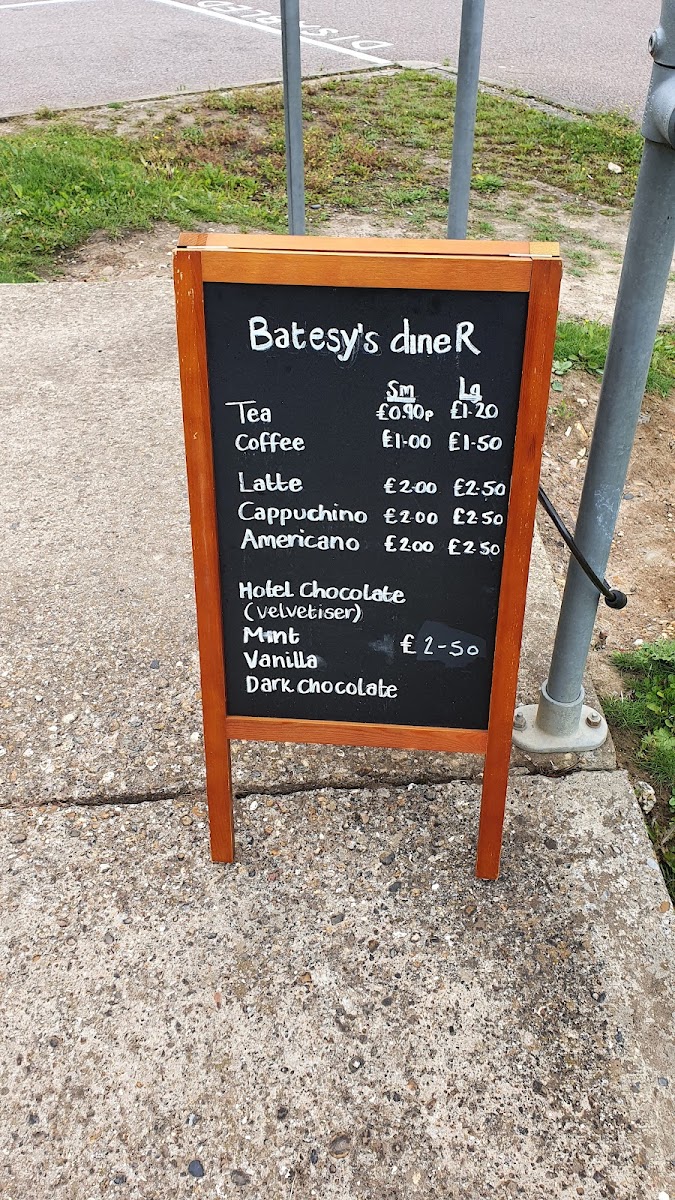 DISABLED
Batesy's dineR
Sm Lg
Tea £0.90p £1-20
Coffee £1-00 £1-50
Latte £2-00 £2-50
Cappuchino £2-00 £2-50
Americano £2.00 £2-50
Hotel Chocolate
(velvetiser)
Mint £2-50
Vanilla
Dark chocolate